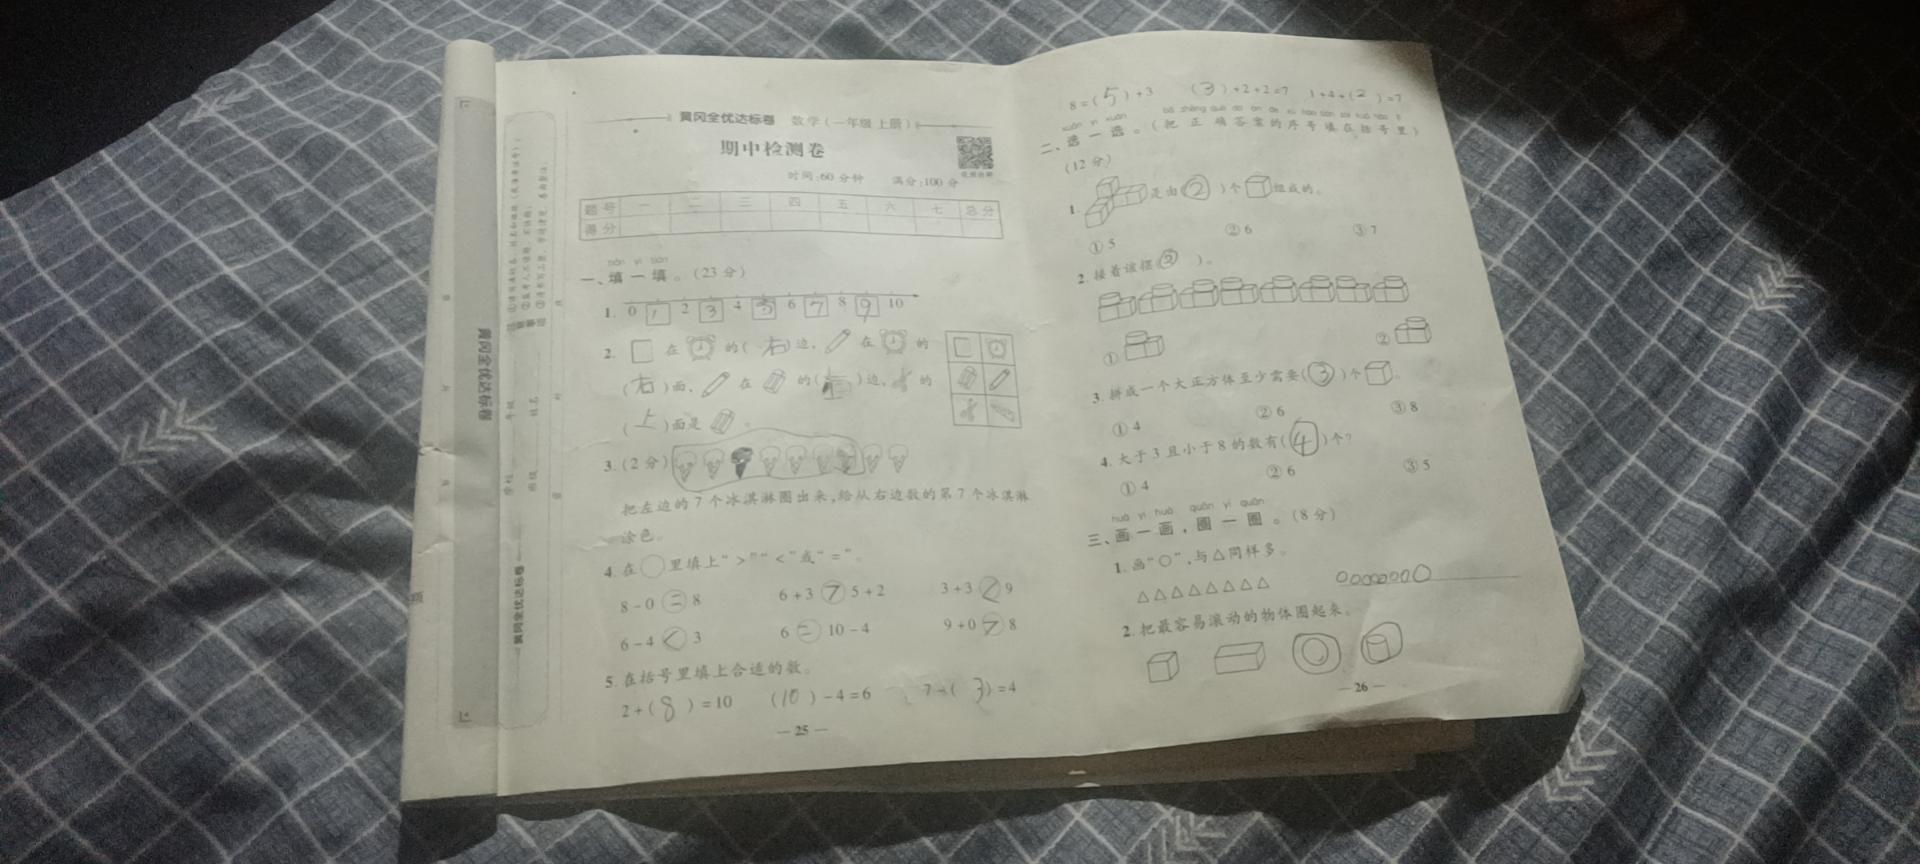 黄冈全优达标卷 数学(一年级上册)
期中检测卷
时间:60分钟 满分:100分
题号 一 二 三 四 五 六 七 总分
得分
tián yì tián
一、填一填。(23分)
1. 0 1 2 3 4 5 6 7 8 9 10
2. 在 的(右)边, 在 的
(右)面, 在 的( )边, 的
(上)面是 。
3.(2分)
把左边的7个冰淇淋圈出来,给从右边数的第7个冰淇淋
涂色。
4.在○里填上“>”“<”或“=”。
8-0 = 8 6+3 > 5+2 3+3 < 9
6-4 < 3 6 = 10-4 9+0 > 8
5.在括号里填上合适的数。
2+(8)=10 (10)-4=6 7-(3)=4
— 25 —
8=(5)+3 (3)+2+2=7 1+4+(2)=7
xuǎn yì xuǎn
二、选一选。(把正确答案的序号填在括号里)
(12分)
1. 是由(②)个 组成的。
①5 ②6 ③7
2.接着该摆(②)。
① ②
3.拼成一个大正方体至少需要(③)个 。
①4 ②6 ③8
4.大于3且小于8的数有(4)个?
①4 ②6 ③5
huà yí huà quān yì quān
三、画一画,圈一圈。(8分)
1.画“○”,与△同样多。
△△△△△△△△ ○○○○○○○○
2.把最容易滚动的物体圈起来。
— 26 —
黄冈全优达标卷
学校 班级 姓名
黄冈全优达标卷